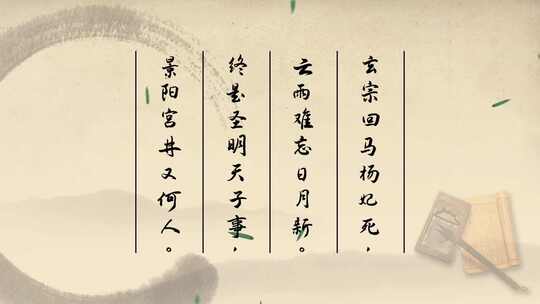 玄宗回马杨妃死，
云雨难忘日月新。
终是圣明天子事，
景阳宫井又何人。